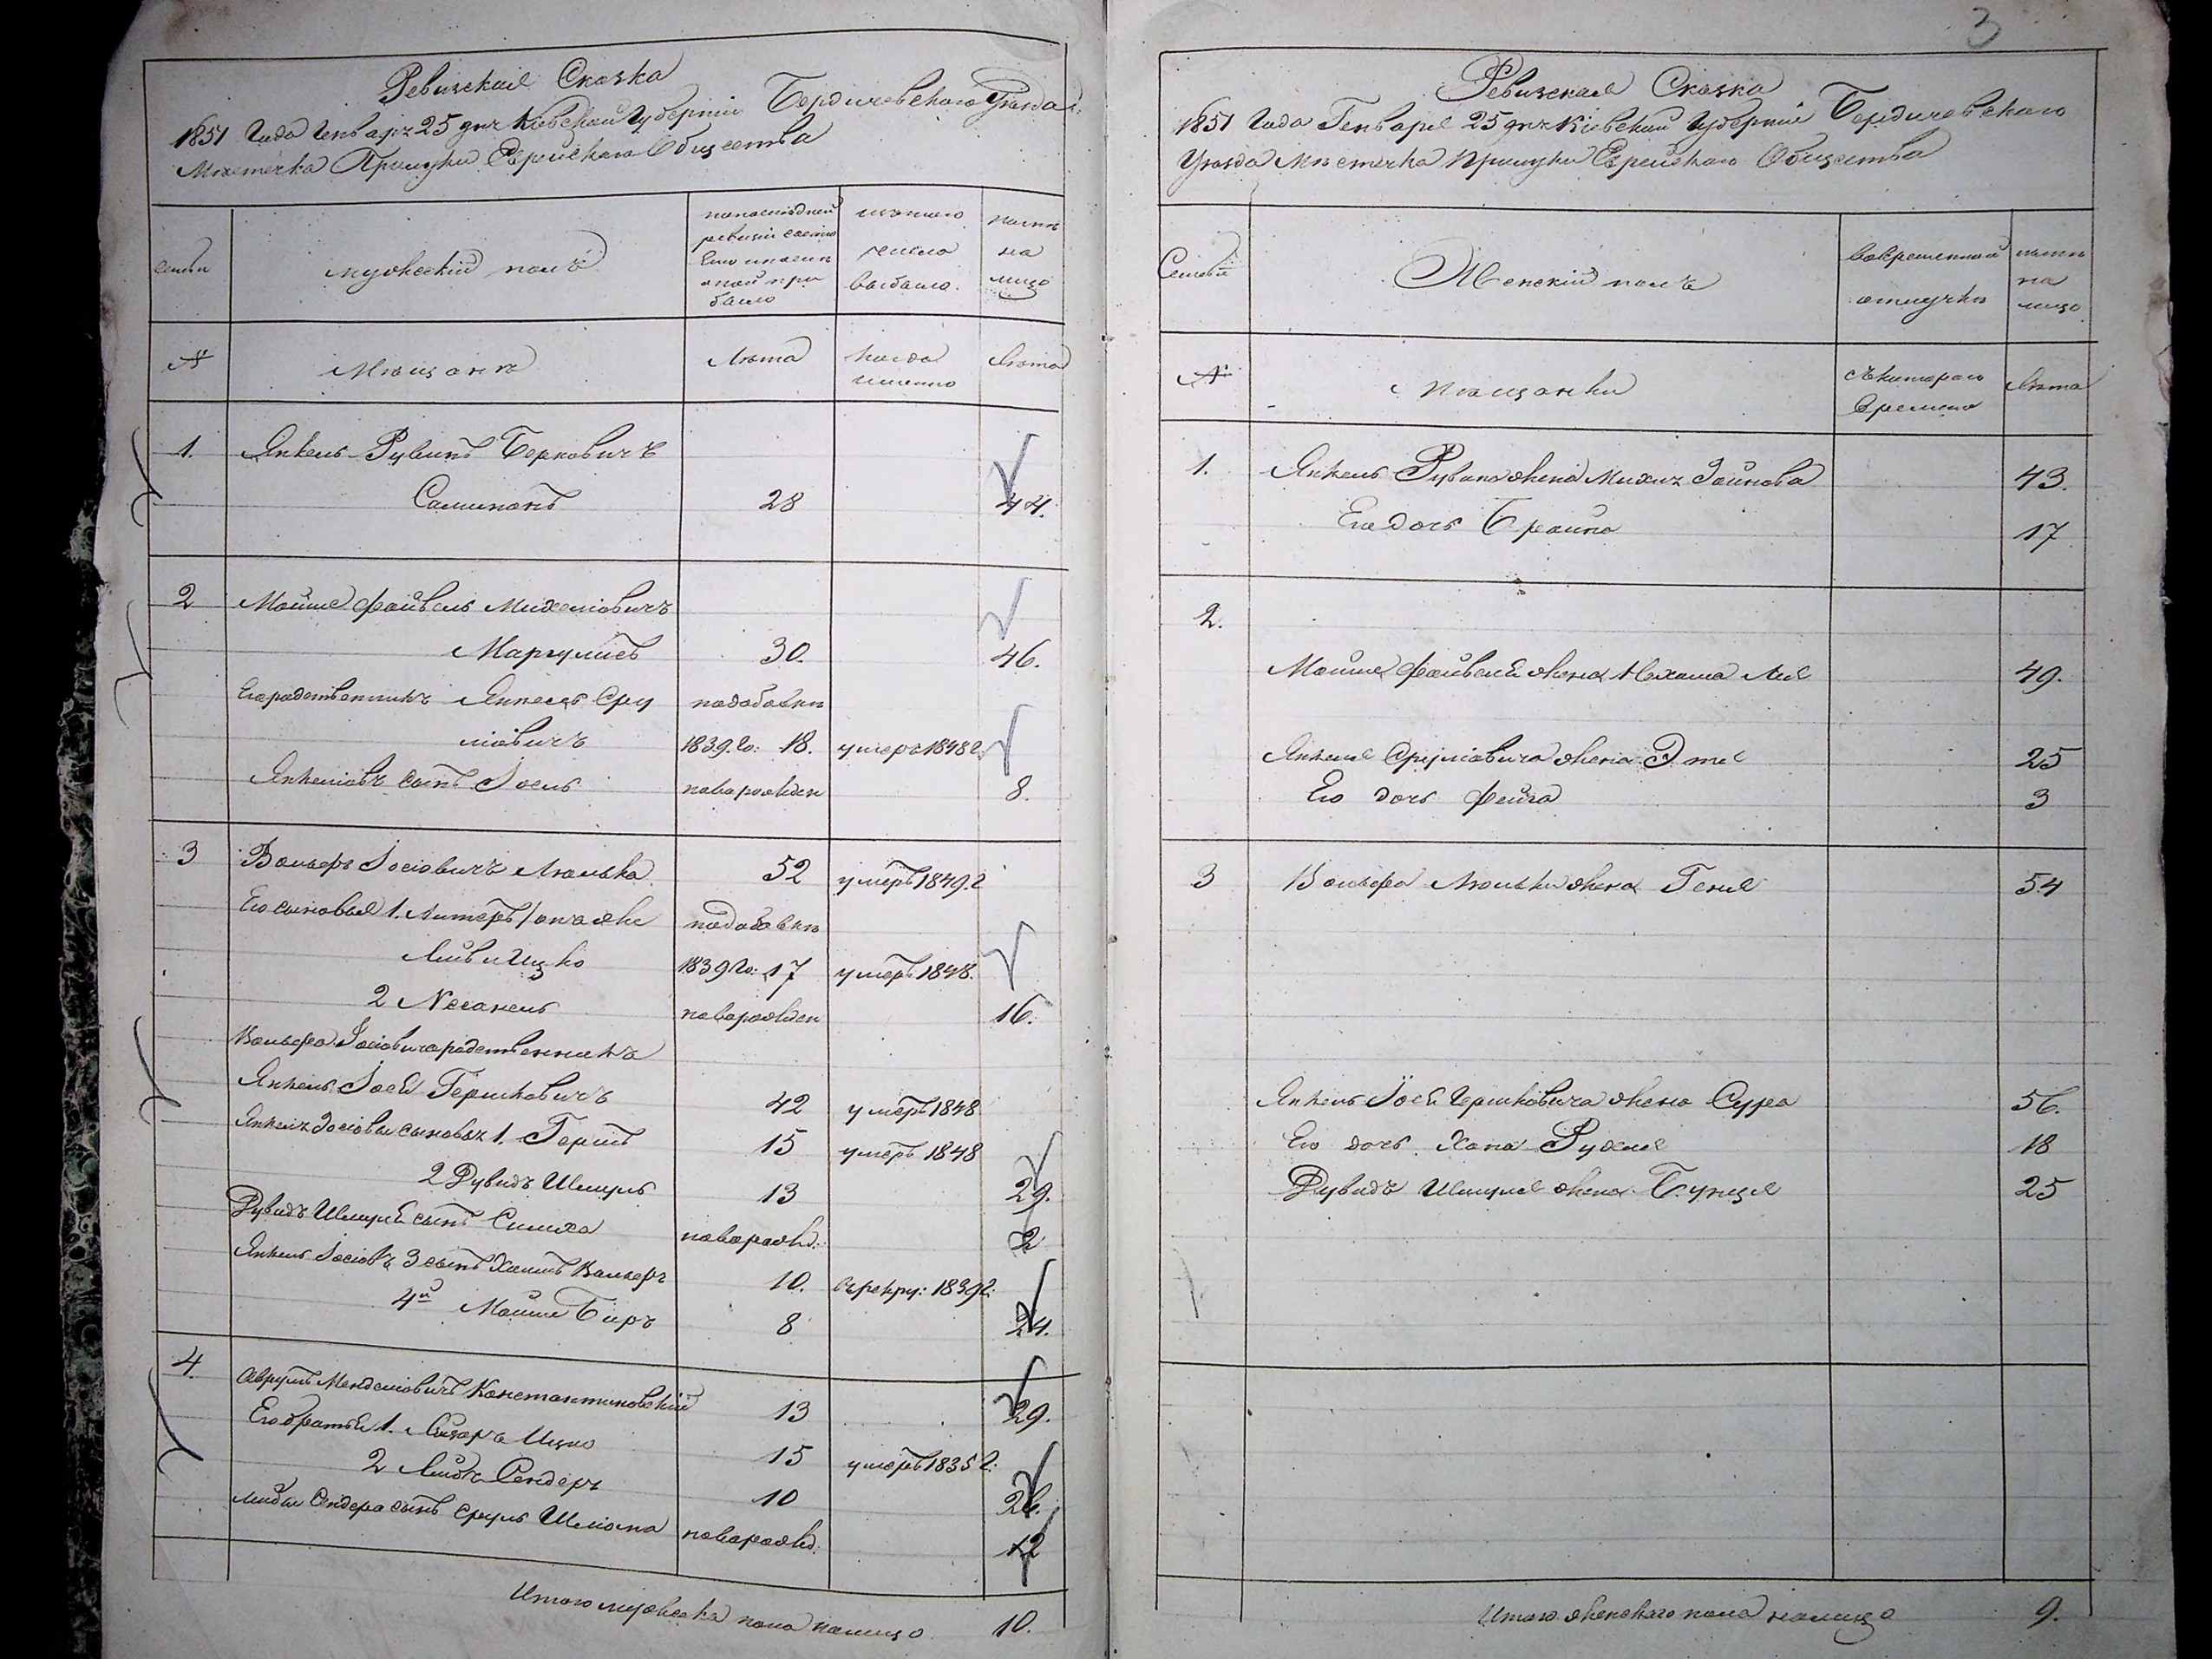 Ревизская Сказка
1851 Года Генваря 25 дня Киевской Губернiи Бердичевского Уѣзда
Мѣстечка Прилуки Еврейского Общества
семьи
мужескiй полъ
по последней
ревизiи состояло
или после
оной при
было
изъ того
числа
выбыло
нынѣ
на
лицо
№
Мѣщане
Лѣта
когда
именно
Лѣта
1. Янкель-Рувинъ Берковичъ
28 44.
2 Мойше Файвель Михелiовичъ
Маргулисъ 30. 46.
Его родственникъ Янкель Сру по добавкѣ
лiовичъ 1839 го: 18. умеръ 1848 г.
Янкелiовъ сынъ Iосель новорожден 8.
3 Вольфъ Iосiовичъ Люлька 52 умеръ 1849 г
Его сыновья 1. по добавкѣ
Лейб Ицко 1839 го: 17 умеръ 1848.
2 новорожден 16.
Вольфа Iосiовича родственникъ
Янкель Iосель Гершковичъ 42 умеръ 1848
Янкеля Iосiовы сыновья 1. Гершъ 15 умеръ 1848
2 Дувидъ Шмуль 13 29.
Дувидъ Шмуля сынъ Симха новорожд. 2
Янкель Iосiовъ 3 сынъ Хаимъ Вольфъ 10. в рекру: 1839 г:
4й Мойше Беръ 8 24.
4. Аврумъ Менделiовичъ Константиновскiй 13 29.
Его братья 1. Лейзоръ Ицко 15 умеръ 1835 г:
2 Лейба Сендеръ 10 26.
Лейбы Сендера сынъ Сруль Шлiома новорожд. 12
Итого мужеска пола налицо 10.
3
Ревизская Сказка
1851 Года Генваря 25 дня Киевской Губернiи Бердичевского
Уѣзда Мѣстечка Прилуки Еврейского Общества
Семьи
Женскiй полъ
во временной
отлучкѣ
нынѣ
на
лицо
№
Мѣщанки
съ которого
времени
Лѣта
1. Янкель Рувина жена Зойнова 43.
Его дочь Брайна 17
2.
Мойше Файвеля жена Нехама Лея 49.
Янкеля Срулiовича жена Этля 25
Его дочь Фейга 3
3 Вольфа Люльки жена Геня 54
Янкель Iосiя Гершковича жена Сурра 56.
Его дочь Хана Рухля 18
Дувидъ Шмуля жена Бунця 25
Итого женского пола налицо 9.